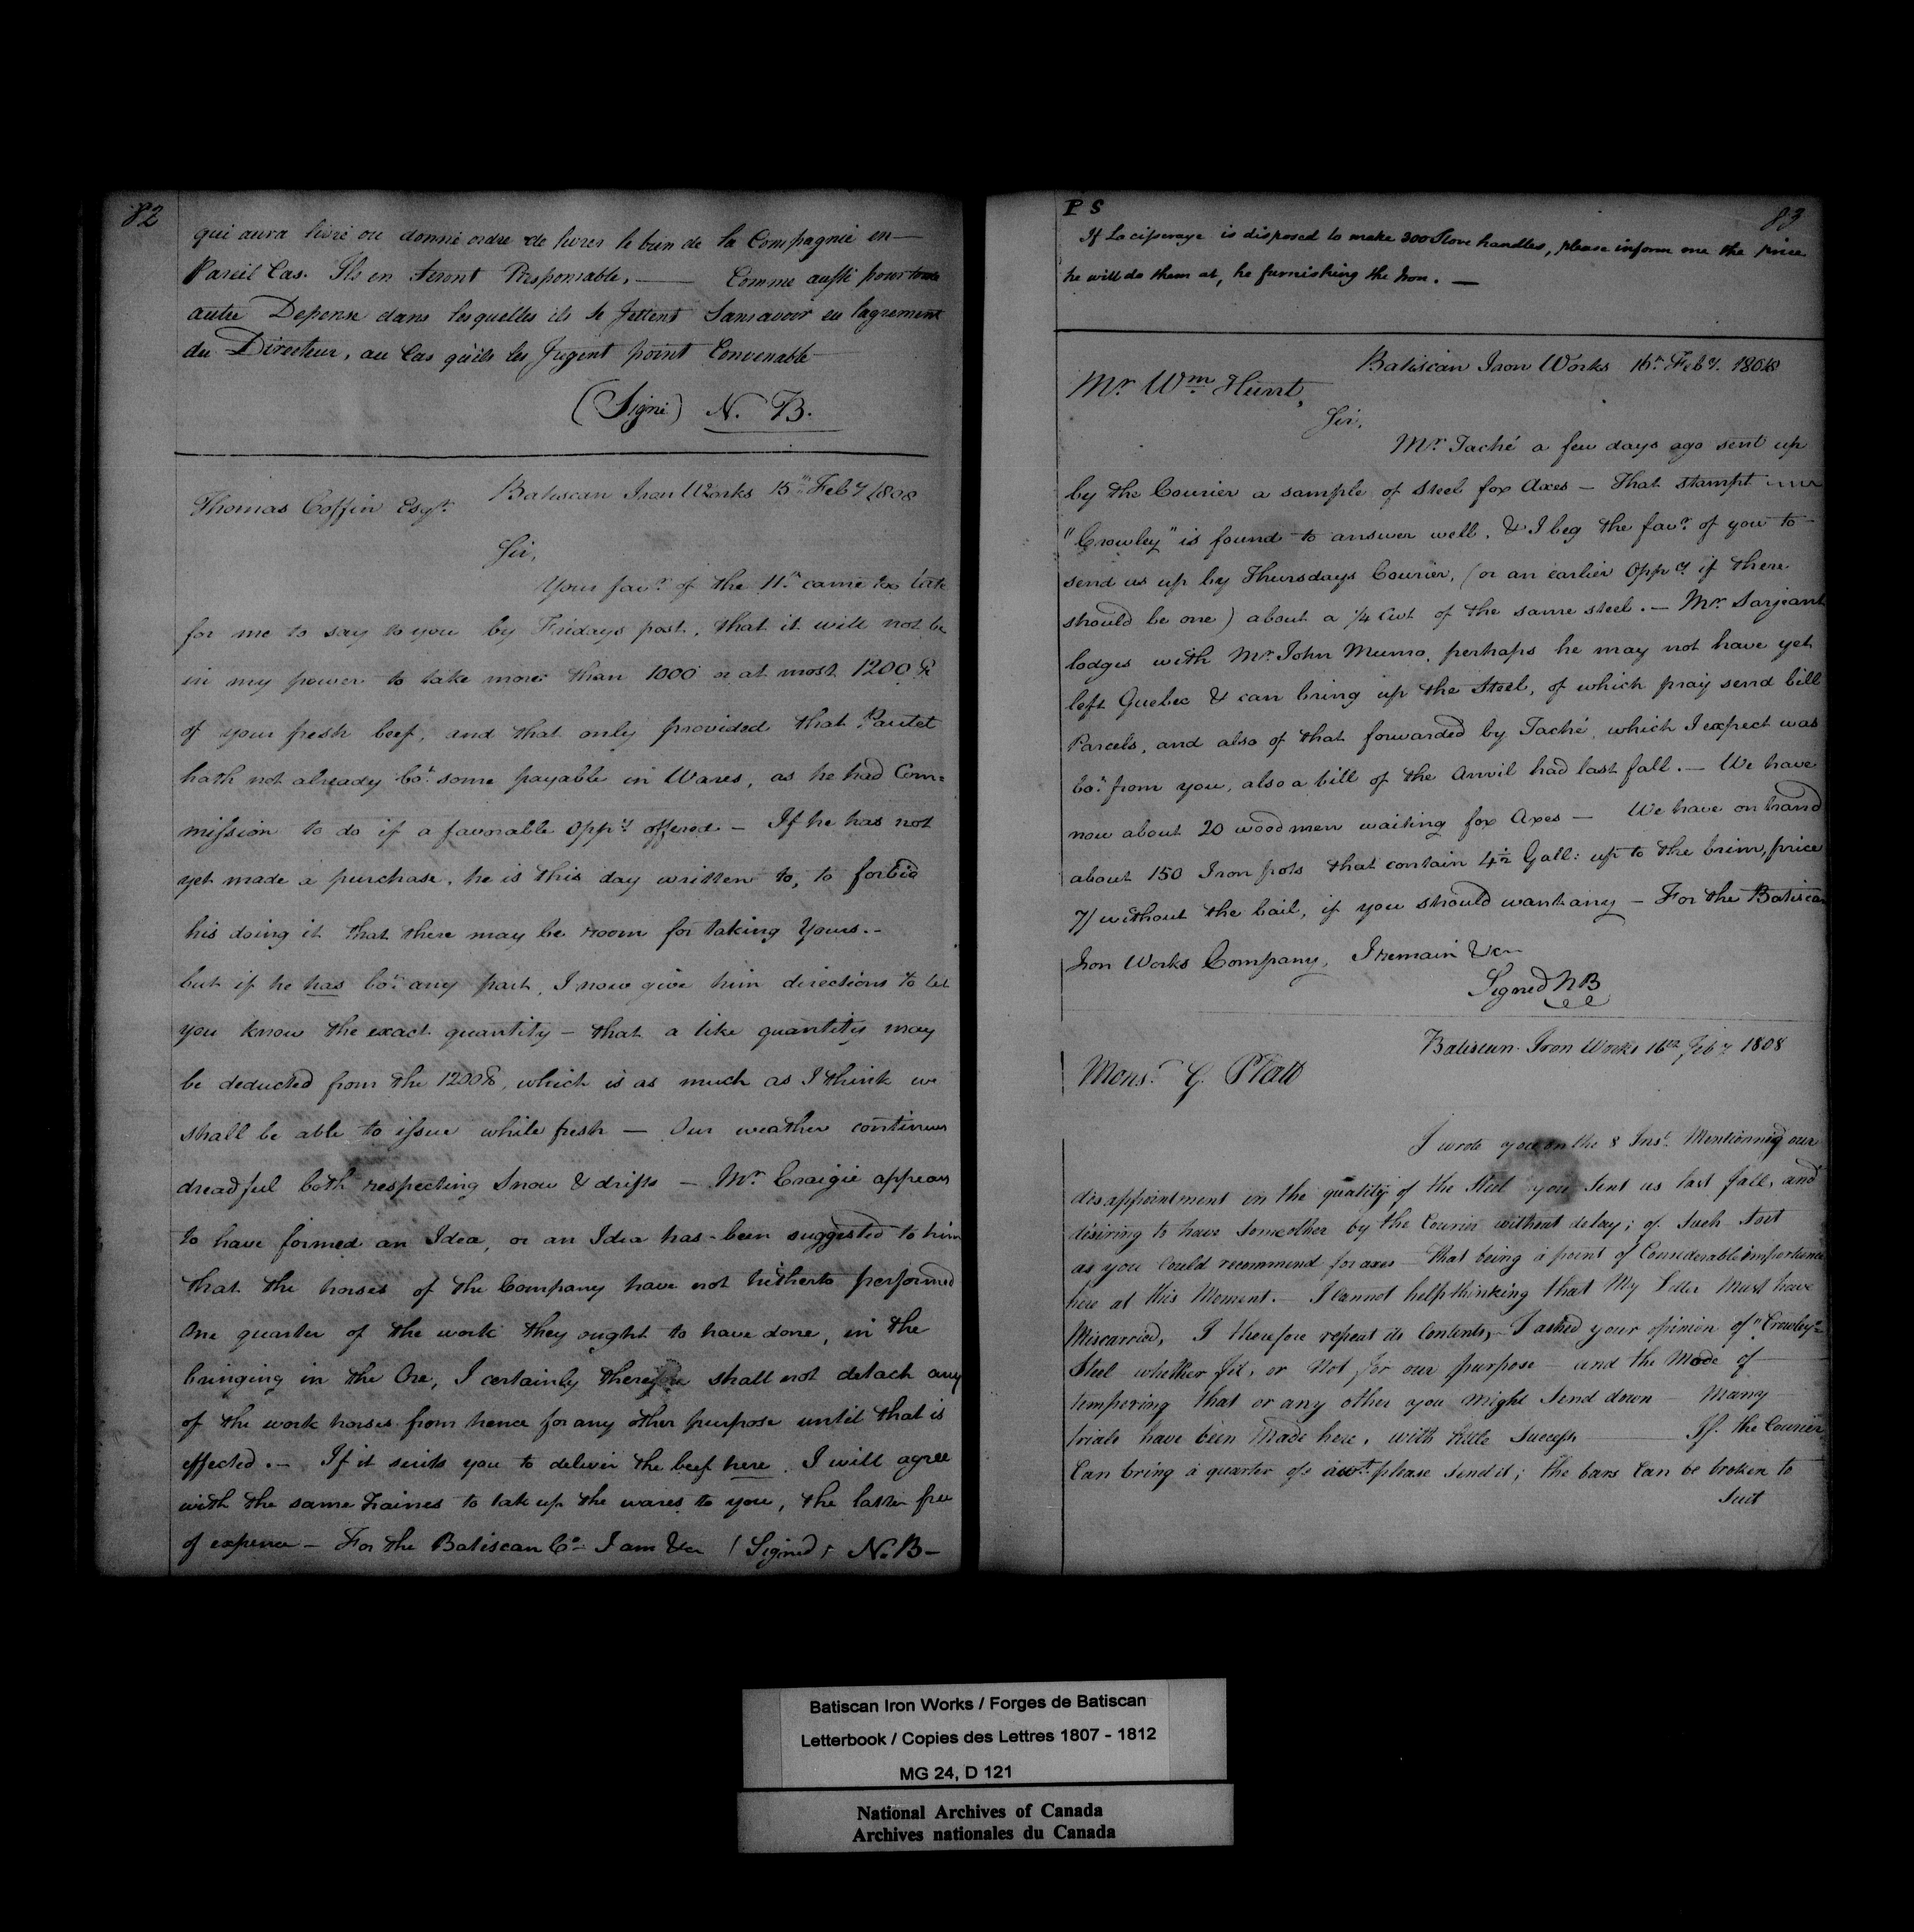 82
qui aura livré ou donné ordre de livrer le bien de la Compagnie en
Pareil Cas. Ils en Seront Responsable, — Comme aussi pour toute
autre Depense dans lesquelles ils se Jettent Sans avoir eu l'agrement
du Directeur, au Cas qu'ils les Jugent point Convenable
(Signé) N. B.
Batiscan Iron Works 15th Feby 1808
Thomas Coffin Esqr.
Sir,
Your favr. of the 11th came too late
for me to say to you by Fridays post, that it will not be
in my power to take more than 1000 or at most 1200 lb
of your fresh beef, and that only provided that Pautet
hath not already bot. some payable in Wares, as he had Com=
mission to do if a favorable Oppy. offered — If he has not
yet made a purchase, he is this day written to, to forbid
his doing it that there may be room for taking Yours.–
but if he has bot. any part, I now give him directions to let
you know the exact quantity – that a like quantity may
be deducted from the 1200 lb, which is as much as I think we
shall be able to issue while fresh — Our weather continues
dreadful both respecting Snow & drifts — Mr. Craigie appears
to have formed an Idea, or an Idea has been suggested to him
that the horses of the Company have not hitherto performed
One quarter of the work they ought to have done, in the
bringing in the Ore, I certainly therefore shall not detach any
of the work horses from hence for any other purpose until that is
effected.— If it suits you to deliver the beef here, I will agree
with the same Traines to take up the wares to you, the latter free
of expence — For the Batiscan Co. I am &ca (Signed) N. B–
P S
83
If Lacisseraye is disposed to make 300 Stove handles, please inform me the price
he will do them at, he furnishing the Iron. —
Batiscan Iron Works 16th Feby. 1808
Mr. Wm. Hunt,
Sir,
Mr. Taché a few days ago sent up
by the Courier a sample of Steel for Axes — That stampt
"Crowley" is found to answer well, & I beg the favr. of you to
send us up by Thursdays Courier, (or an earlier Oppy. if there
should be one) about a 1/4 Cwt of the same steel.— Mr. Sarjeant
lodges with Mr. John Munro, perhaps he may not have yet
left Quebec & can bring up the Steel, of which pray send bill
Parcels, and also of that forwarded by Taché, which I expect was
bot. from you, also a bill of the Anvil had last fall.— We have
now about 20 woodmen waiting for Axes — We have on hand
about 150 Iron pots that contain 4½ Gall: up to the brim, price
7/ without the bail, if you should want any — For the Batiscan
Iron Works Company, I remain &ca
Signed NB
Batiscan Iron Works 16th Feby 1808
Monsr. G. Platt
I wrote you on the 8 Inst. Mentioning our
disappointment in the quality of the Steel you Sent us last fall, and
desiring to have Some other by the Courier without delay; of Such Sort
as you Could recommend for axes — that being a point of Considerable importance
here at this Moment.— I Cannot help thinking that My Letter Must have
Miscarried, I therefore repeat its Contents,– I asked your opinion of "Crowley"
Steel whether fit, or Not, for our purpose — and the Mode of
tempering that or any other you Might Send down — Many
trials have been Made here, with little Success — If the Courier
Can bring a quarter of a Cwt. please Send it; the bars Can be broken to
Suit
Batiscan Iron Works / Forges de Batiscan
Letterbook / Copies des Lettres 1807 - 1812
MG 24, D 121
National Archives of Canada
Archives nationales du Canada